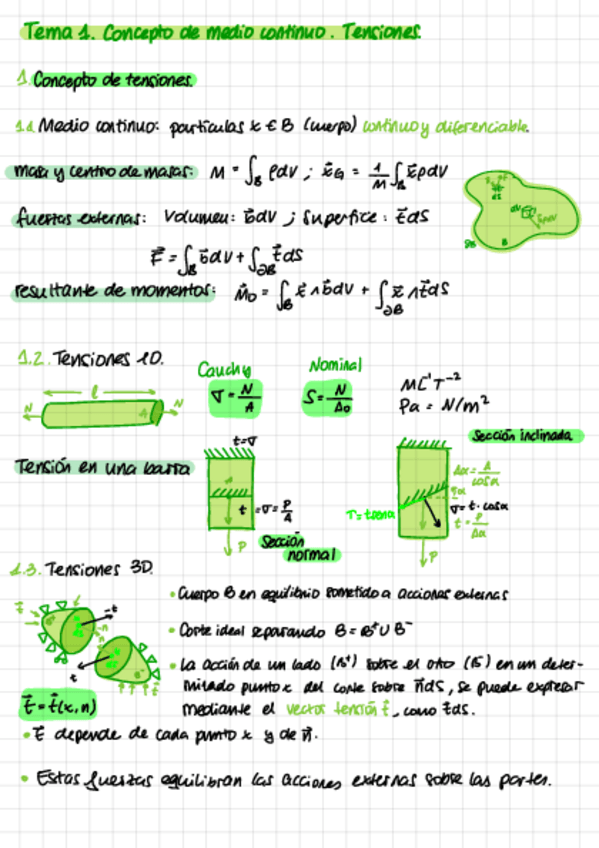 Tema 1. Concepto de medio continuo. Tensiones.
1. Concepto de tensiones.
1.1. Medio continuo: partículas x ∈ B (cuerpo) continuo y diferenciable.
masa y centro de masas: M = ∫_B ρdV ; x⃗_G = 1/M ∫_B x⃗ρdV
fuerzas externas: Volumen: b⃗dV ; Superfice: t⃗dS
dS
dV
∂B B
F⃗ = ∫_B b⃗dV + ∫_∂B t⃗dS
resultante de momentos: M⃗_O = ∫_B x⃗ ∧ b⃗dV + ∫_∂B x⃗ ∧ t⃗dS
1.2. Tensiones 1D.
Cauchy Nominal
l
N A N
σ = N/A S = N/A₀
ML⁻¹T⁻²
Pa = N/m²
Sección inclinada
Tensión en una barra
t=σ
t = σ = P/A
P
Sección normal
Aα = A/cosα
τ = t·senα
σ = t·cosα
t = P/Aα
P
1.3. Tensiones 3D.
• Cuerpo B en equilibrio sometido a acciones externas
• Corte ideal separando B = B⁺ ∪ B⁻
• La acción de un lado (B⁺) sobre el otro (B⁻) en un deter-
minado punto x del corte sobre n⃗dS, se puede expresar
mediante el vector tensión t⃗, como t⃗dS.
-t
-n
t
t⃗ = t⃗(x,n)
• t⃗ depende de cada punto x y de n⃗.
• Estas fuerzas equilibran las acciones externas sobre las partes.